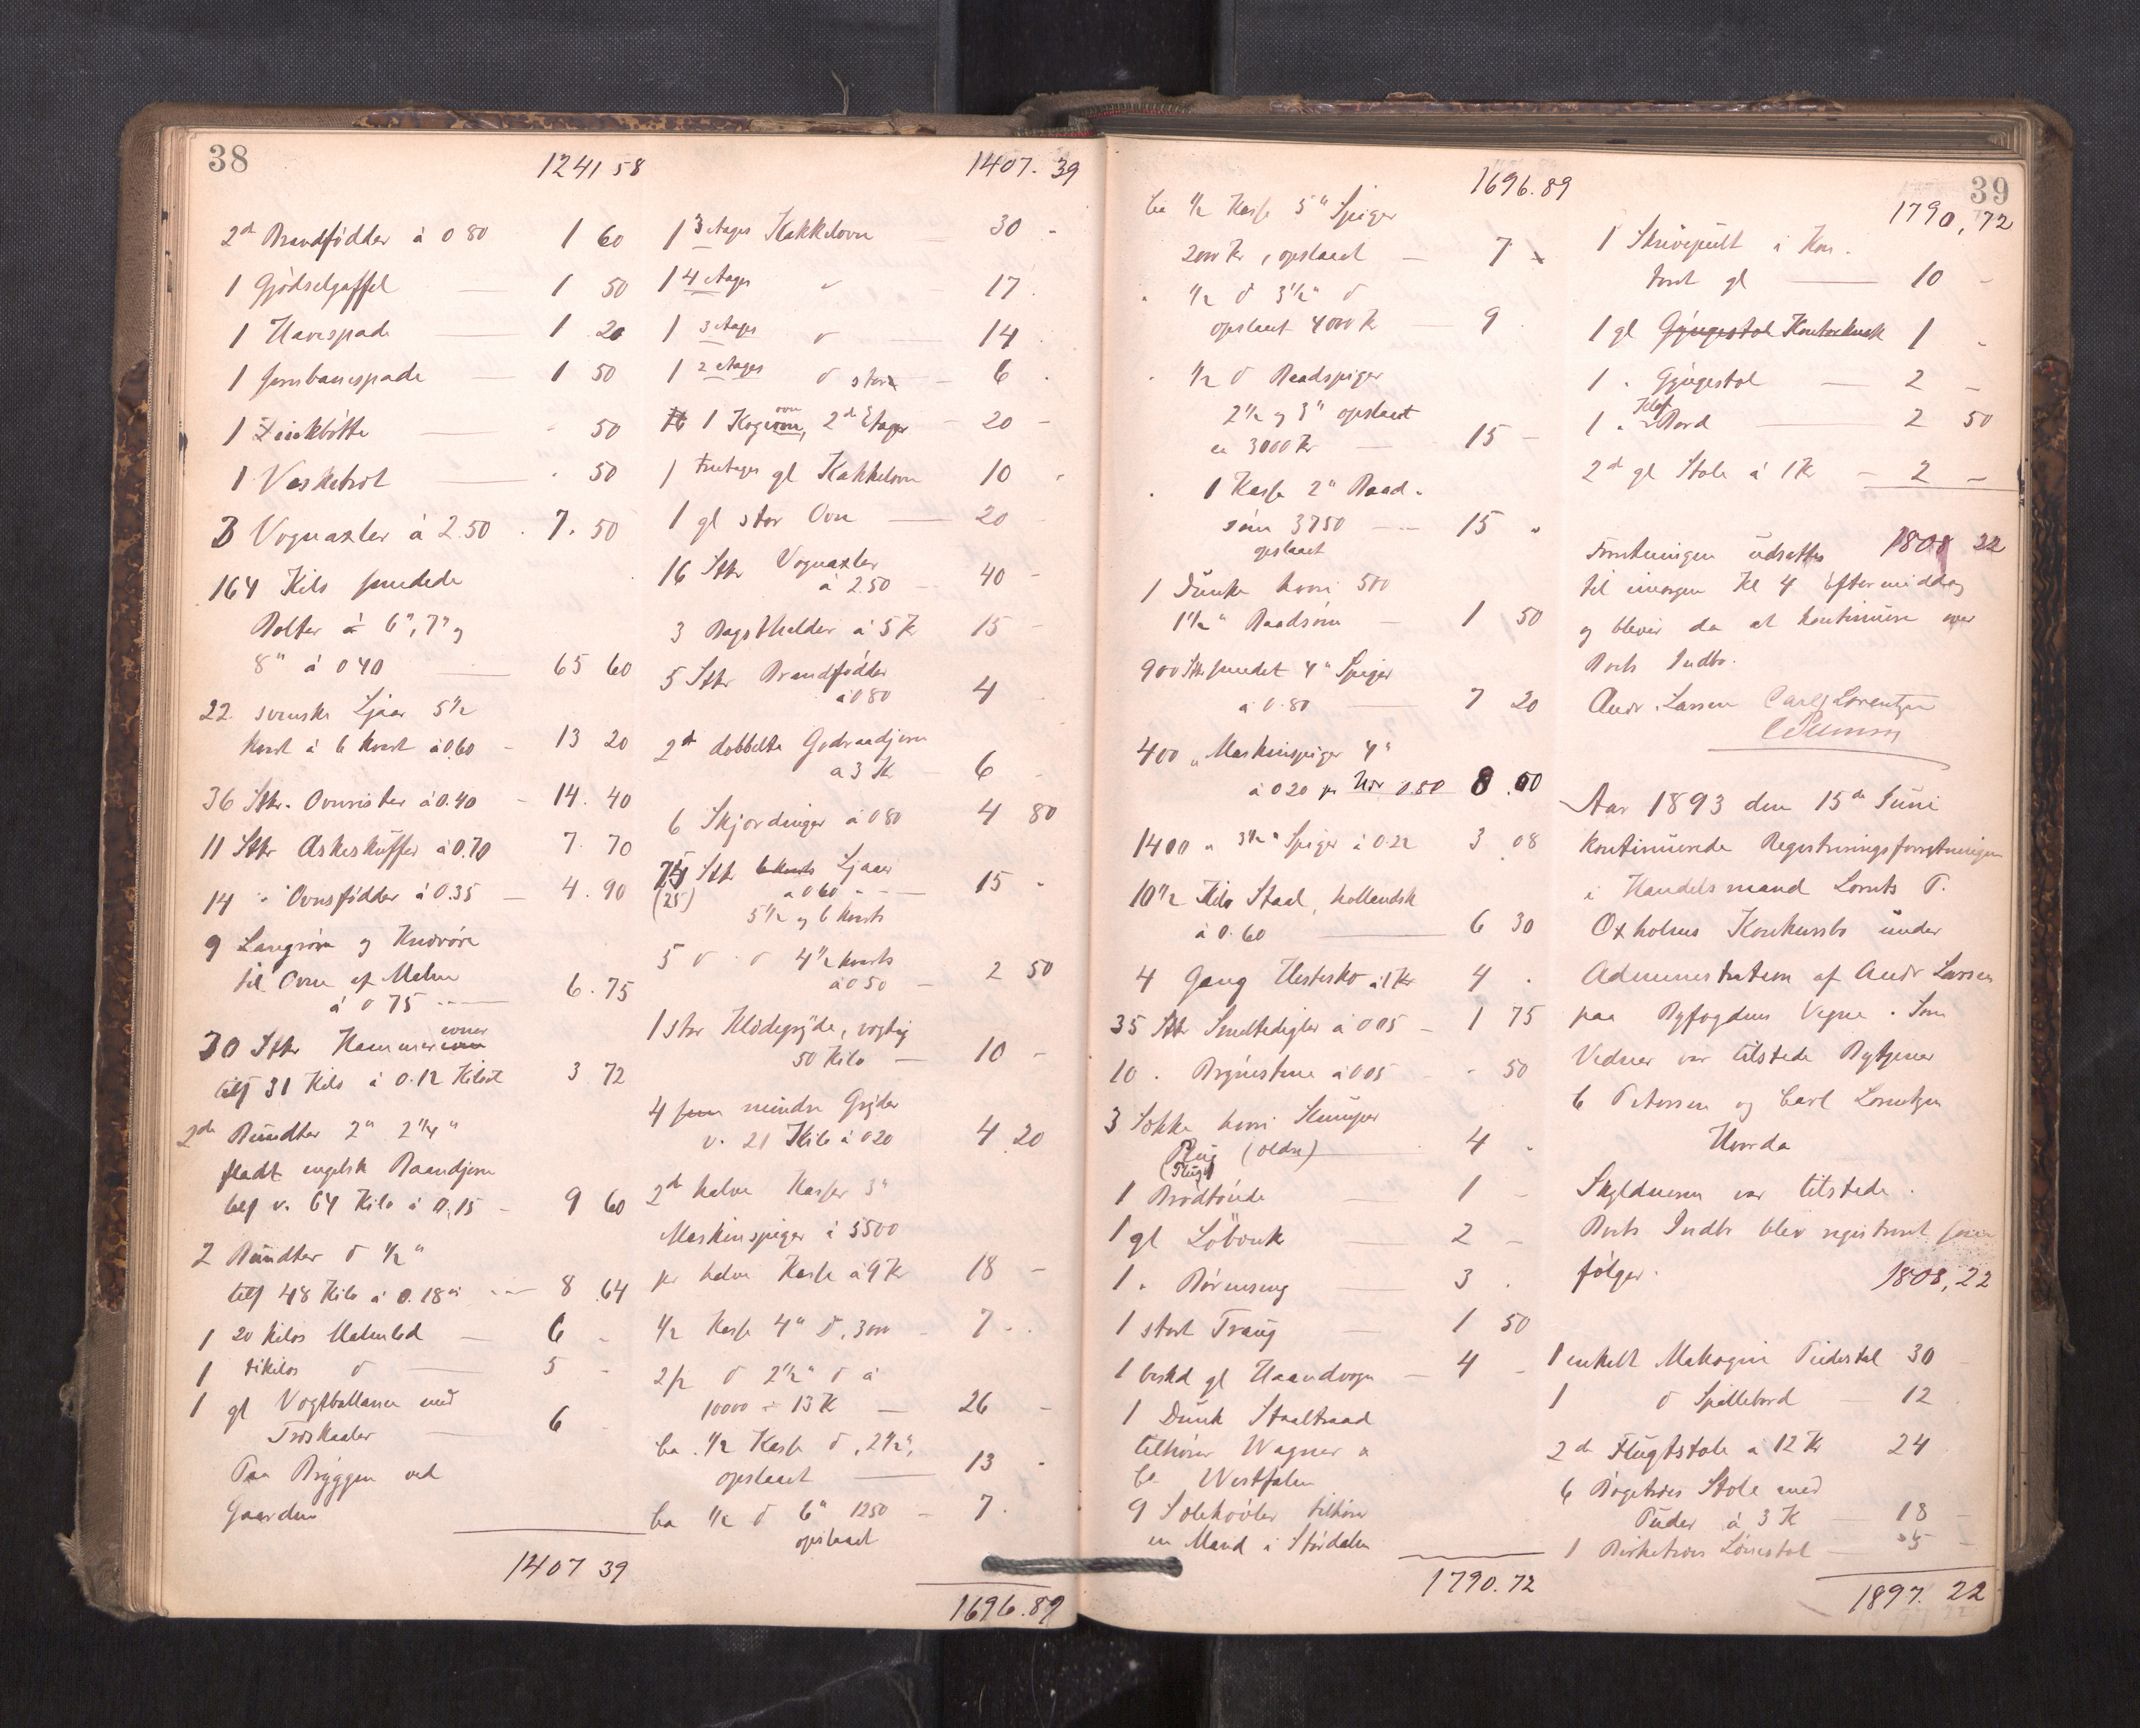 38
1241 58
2de Brandfödder à 0 80 1 60
1 Gjödselgaffel 1 50
1 Havespade 1 20
1 Jernbanespade 1 50
1 Zinkbötte " 50
1 Vaskebræt " 50
3 Vognaxler à 2.50 7. 50
164 Kilo smedede
Bolter à 6", 7" og
8" à 0 40 65 60
22 svenske Ljaar 5 1/2
kvart à 6 kvart à 0.60 13 20
36 Stkr. Ovnrister à 0.40 14. 40
11 Stkr Askeskuffer à 0.70 7. 70
14 " Ovnsfödder à 0.35 4. 90
9 Langrör og Knærör
til Ovne af Malm
à 0 75 6. 75
30 Stkr Hammer
tils 31 Kilo à 0.12 Kilot 3 72
2de Bundter 2" 2 1/4"
fladt engelsk Baandjern
tils v. 64 Kilo à 0.15 9 60
2 Bundter d 1/2"
tils 48 Kilo à 0.18 8 64
1 20 kilos Malmlod 6 -
1 tikilos d 5 -
1 gl Vægtballance med
Træskaaler 6 -
Paa Bryggen ved
Gaarden
1407 39
1407. 39
1 3 Etages Kakkelovn 30 -
1 4 Etages " 17
1 3 Etages " 14
1 2 Etages d store 6
1 Kogeovn, 2de Etager 20 -
1 Treetages gl Kakkelovn 10 -
1 gl stor Ovn 20 -
16 Stkr Vognaxler
à 2 50 40 -
3 Bagsthelder à 5 Kr 15 -
5 Stkr Brandfödder
à 0 80 4 -
2de dobbelte
à 3 Kr 6 -
6 Skjordinger à 0 80 4 80
75 Stkr Ljaaer
(25) à 0 60 15 -
5 1/2 og 6 kvarts
5 d d 4 1/2 kvarts
à 0 50 2 50
1 stor Klædegryde, vægtig
50 Kilo 10 -
4 mindre Gryder
v. 21 Kilo à 0 20 4 20
2de halve Kasser 3"
Maskinspiger à 5500
pr halve Kasse à 9 Kr 18 -
1/2 Kasse 4" d. 3000 7 -
2/2 d 2 1/2" d à
10000 à 13 K 26 -
Ca 1/2 Kasse d, 2 1/2",
opslaaet 13 -
Ca 1/2 d 6" 1250 7.
opslaaet
1696. 89
39
1696. 89
Ca 1/2 Kasse 5" Spiger
2000 Kr, opslaaet 7
" 1/2 d 3 1/2" d
opslaaet 4000 Kr 9
" 1/2 d Baadspiger
2 1/2 og 3" opslaaet
ca 3000 Kr 15 -
" 1 Kasse 2" Baad-
söm 3750 15 "
opslaaet
1 Dunke hvori 500
1 1/2" Baadsöm 1 50
900 Stkr smedet 4" Spiger
à 0.80 7 20
400 " Maskinspiger "4"
à 0 20 pr 0.80
1400 " 3 1/2" Spiger à 0.22 3 08
10 1/2 Kilo Staal, hollandsk
à 0.60 6 30
4 Gang Hestesko à 1 Kr 4 "
35 Stkr Smeltedigler à 0 05 1 75
10 " Brynestene à 0 05 " 50
3 Sække hvori Stumper
(oldn) 4 "
1 Brödtönde 1 -
1 gl Löbænk 2 -
1 " Börneseng 3 "
1 stort Traug 1 50
1 beskd gl Haandvogn 4 -
1 Dunk Staaltraad
tilhörer Wagner &
Co Westfalen
9 Solehövler tilhörer
en Mand i Stördalen
1790. 72
1790, 72
1 Skrivepult i Kon-
toret gl 10 -
1 gl Gyngestol Kontorkrak 1 -
1 " Gyngestol 2 -
1 " Klaf Bord 2 50
2de gl Stole à 1 Kr 2 -
1808 22
Forretningen udsættes
til imorgen Kl 4 Eftermiddag
og bliver da at kontinuere over
Boets Indbo.
Andr. Larssen Carl Lorentzen
C Petersen
Aar 1893 den 15de Juni
kontinuerede Registreringsforretningen
i Handelsmand Lorents P.
Oxholms Konkursbo under
Administration af Andr Larssen
paa Byfogdens Vegne. Som
Vidner var tilstede Bytjener
C Petersen og Carl Lorentzen
Hvorda
Skyldneren var tilstede.
Boets Indbo blev registreret som
fölger. 1808, 22
1 enkelt Mahogni Pidestal 30
1 d Spillebord 12
2de Flugtstole à 12 Kr 24
6 Bögetræes Stole med
Puder à 3 K 18 -
1 Birketræes Lænestol 5 -
1897. 22